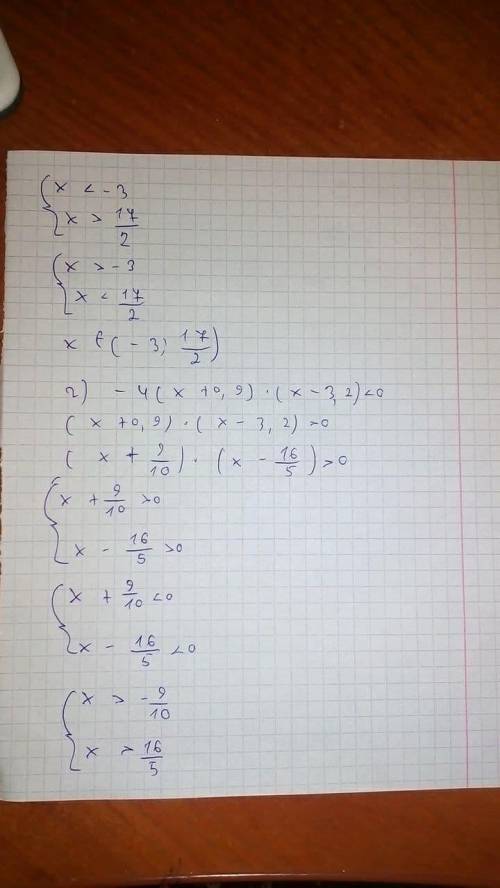 { x < -3
x > 17/2
{ x > -3
x < 17/2
x ∈ (-3; 17/2)
г) -4(x+0,9)·(x-3,2)<0
(x+0,9)·(x-3,2)>0
(x + 9/10)·(x - 16/5)>0
{ x + 9/10 >0
x - 16/5 >0
{ x + 9/10 <0
x - 16/5 <0
{ x > -9/10
x > 16/5